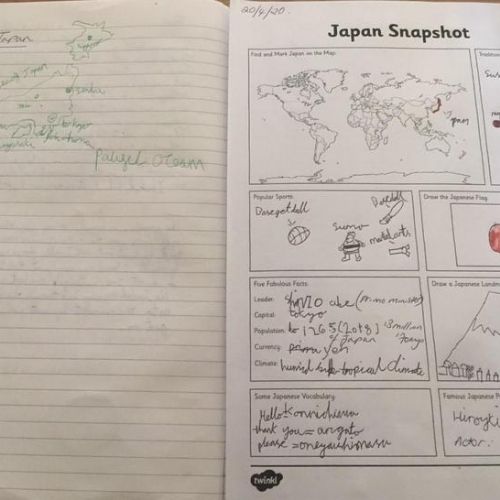 Japan
Japan
tokyo
Pakific ocean
20/4/20.
Japan Snapshot
Find and Mark Japan on the Map.
Popular Sports
Basegetball
Sumo
Baseball
Draw the Japanese Flag
Five Fabulous Facts
Leader: abe (Prime minister)
Capital: tokyo
Population: 1265 (2018) 13 million
of Japan Tokyo
Currency: yen
Climate: humid tropical climate
Draw a Japanese Landm
Some Japanese Vocabulary
Hello = konnichiwa
thank you = arigato
please = oneyauhimasu
Famous Japanese P
Hiroyki
Actor.
twinkl